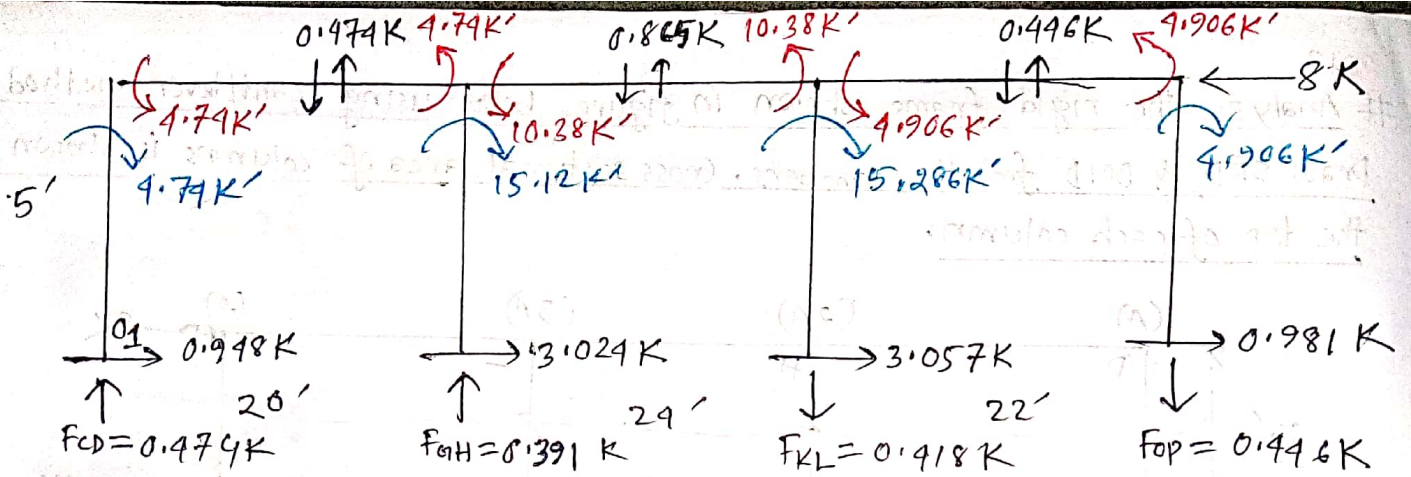 0.474K 4.74K' 0.865K 10.38K' 0.446K 4.906K'
8K
4.74K' 10.38K' 4.906K'
4.74K' 15.12K' 15.286K' 4.906K'
.5'
O1 0.948K 3.024K 3.057K 0.981K
20' 24' 22'
FCD=0.474K FGH=0.391K FKL=0.418K FOP=0.446K